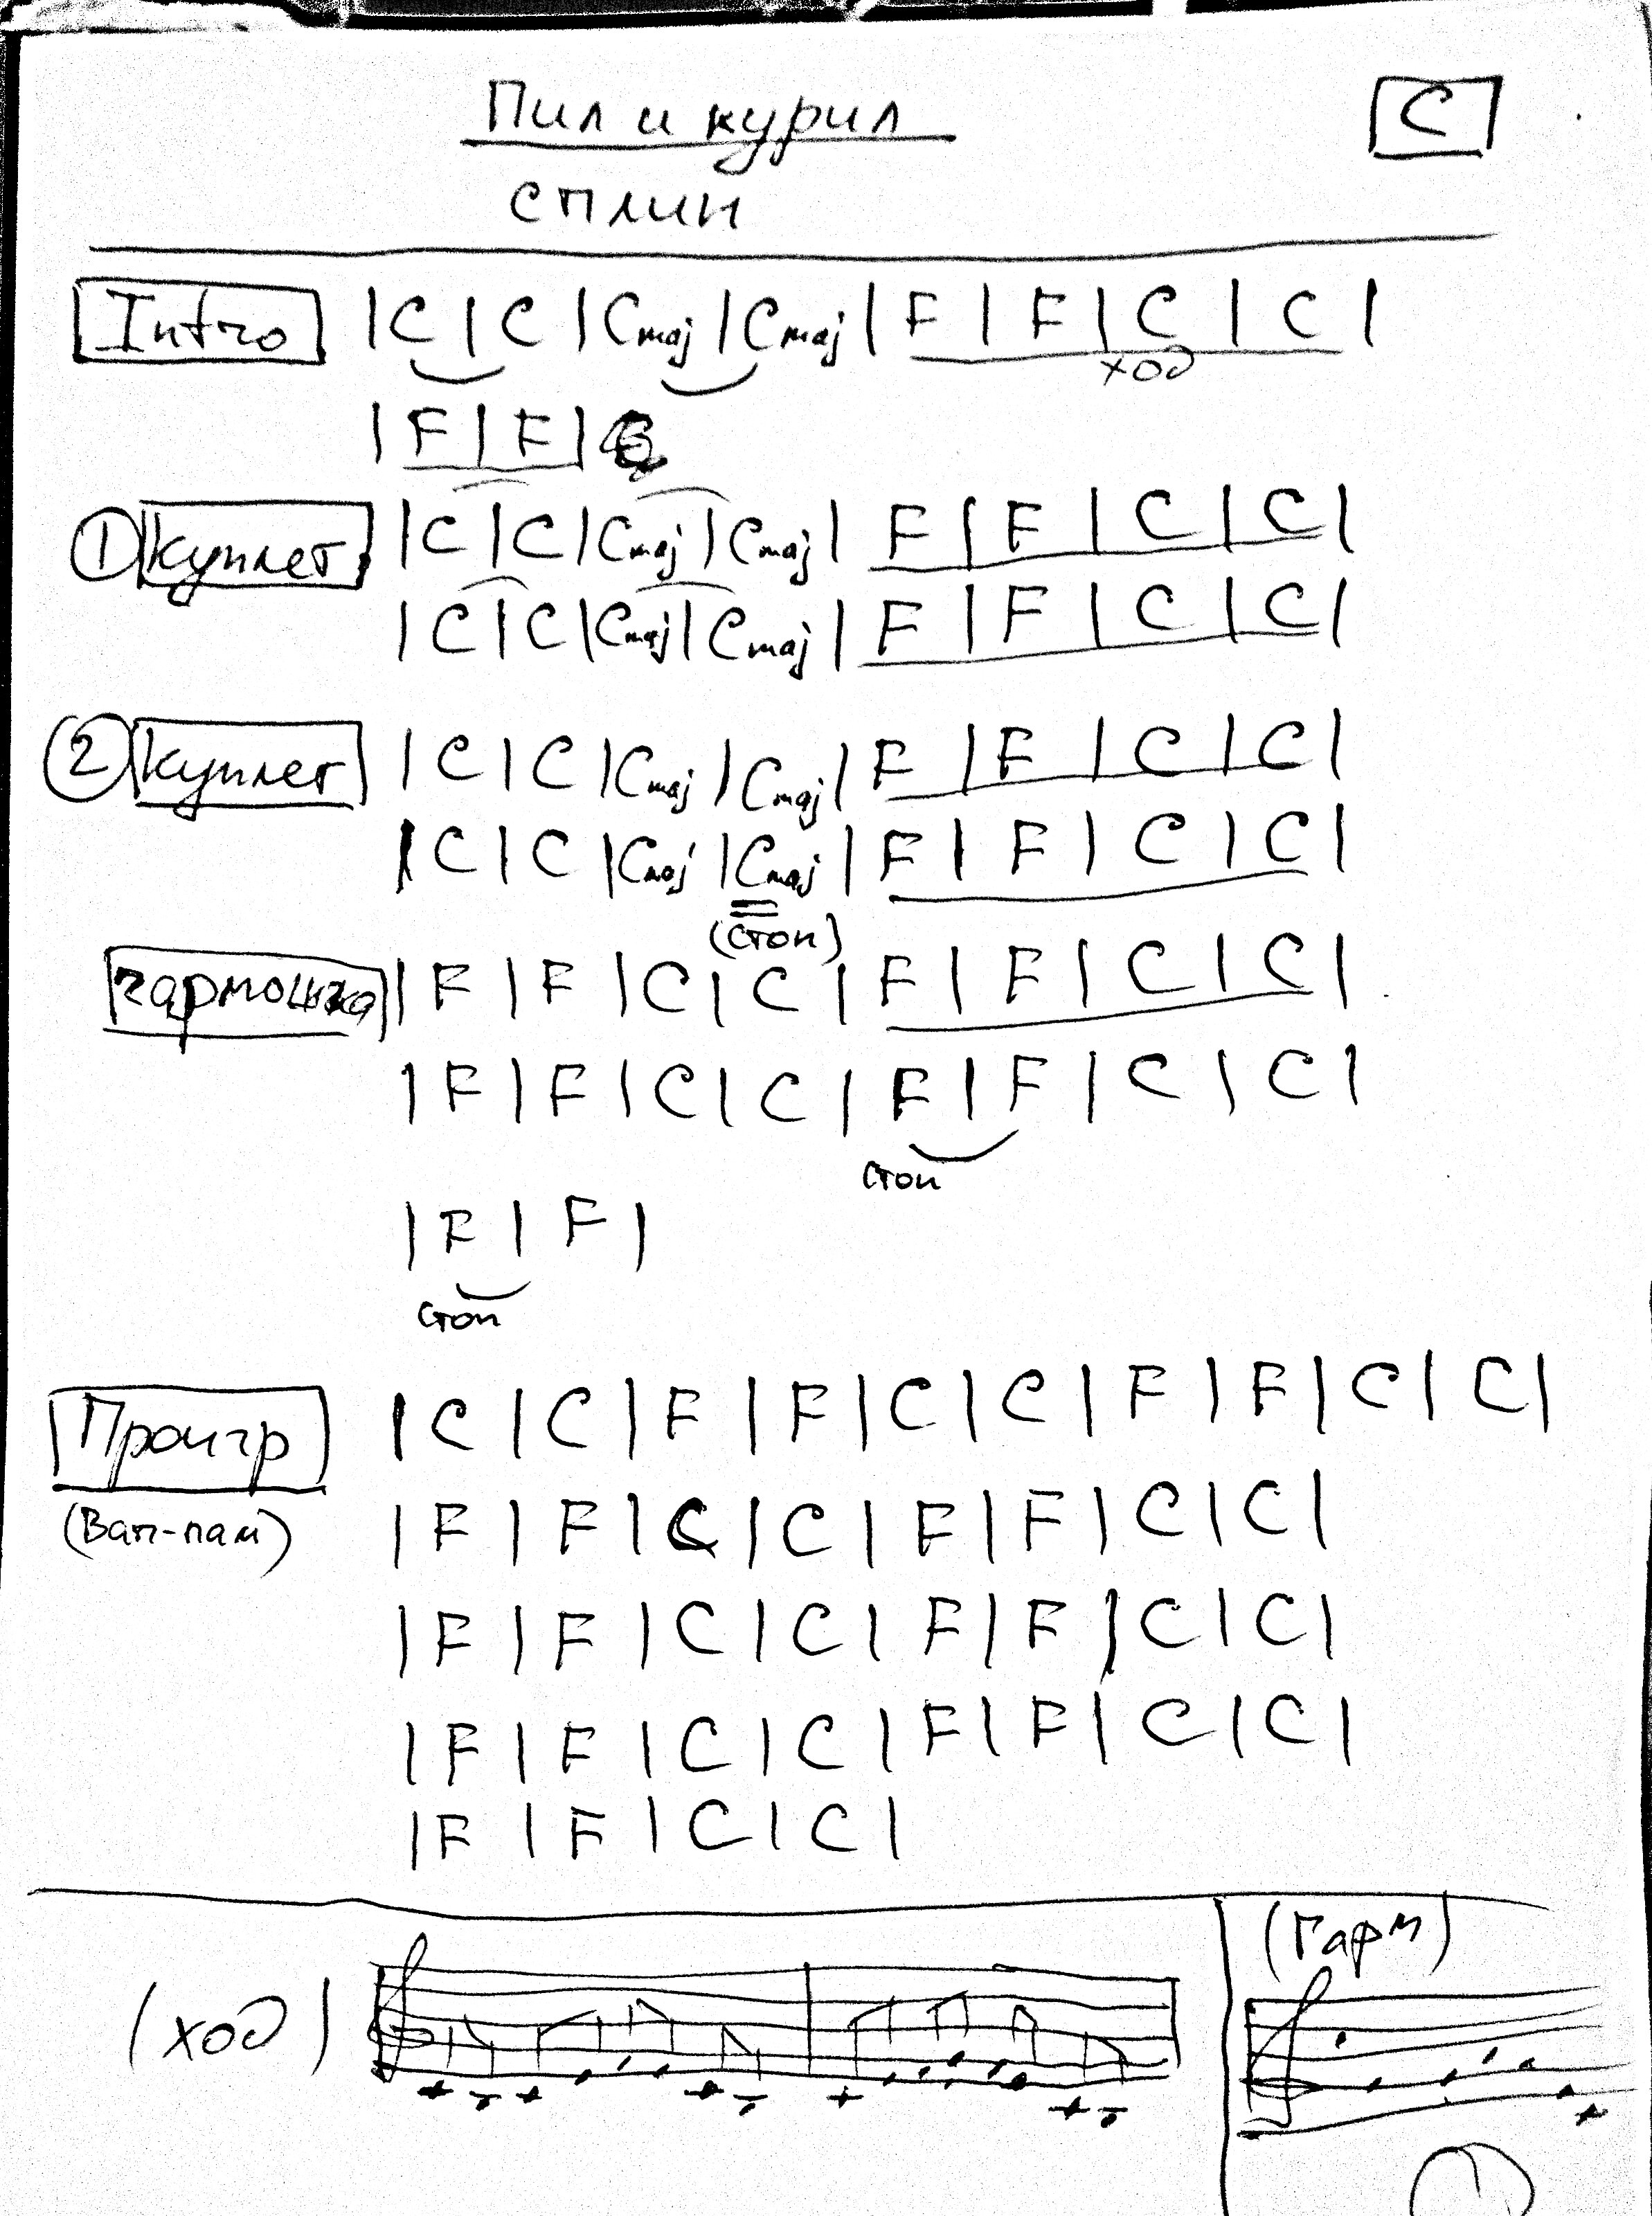 Пил и курил
C
сплин
Intro | C | C | Cmaj | Cmaj | F | F | C | C |
ход
| F | F |
1 куплет | C | C | Cmaj | Cmaj | F | F | C | C |
| C | C | Cmaj | Cmaj | F | F | C | C |
2 куплет | C | C | Cmaj | Cmaj | F | F | C | C |
| C | C | Cmaj | Cmaj | F | F | C | C |
(стоп)
гармошка | F | F | C | C | F | F | C | C |
| F | F | C | C | F | F | C | C |
Стоп
| F | F |
Стоп
Проигр | C | C | F | F | C | C | F | F | C | C |
(Вап-пам) | F | F | C | C | F | F | C | C |
| F | F | C | C | F | F | C | C |
| F | F | C | C | F | F | C | C |
| F | F | C | C |
(ход)
(Гарм)